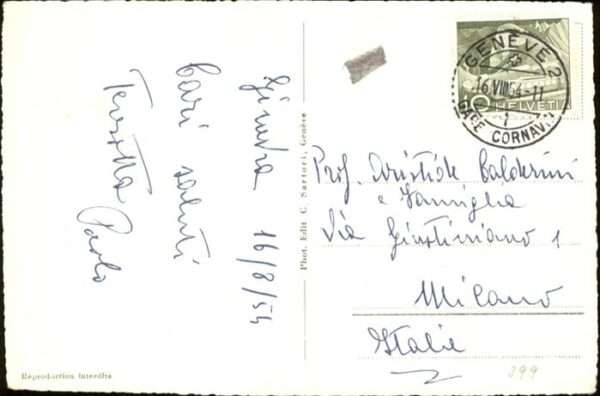 Ginevra 16/8/54
Cari saluti
Paolo
Phot. Edit. C. Sartori, Genève
Réproduction interdite
GENÈVE 2
16.VIII.54-11
1
GARE CORNAVIN
HELVETIA
Prof. Aristide Calderini
e Famiglia
Via Giustiniano 1
Milano
Italie
399